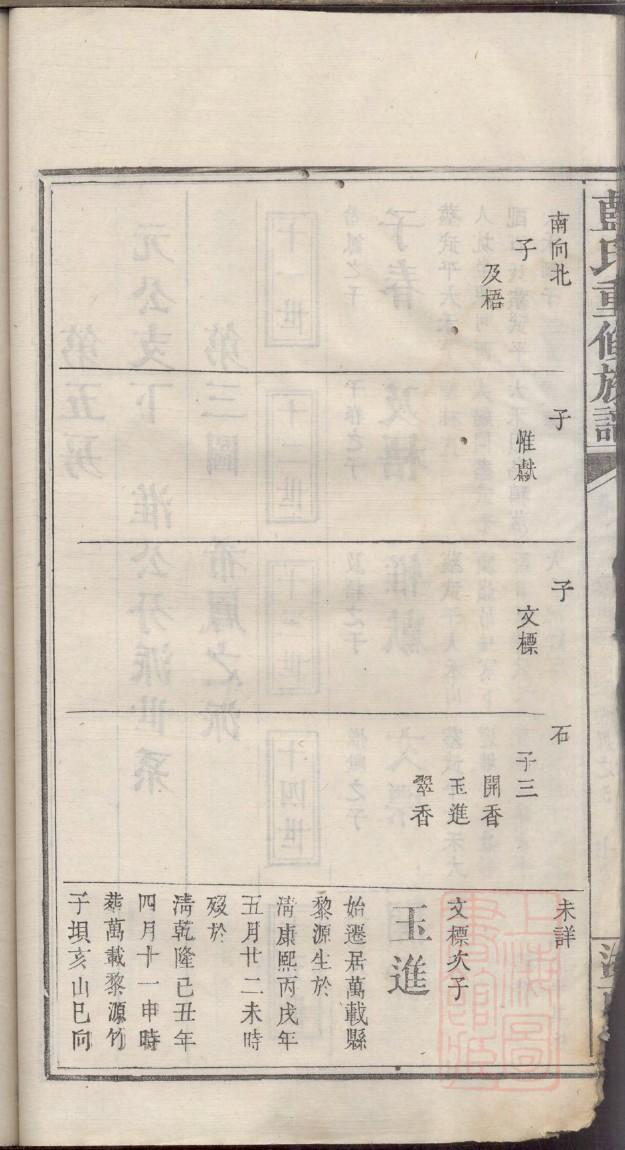 藍氏重修族譜
南向北
子
及梧
子
惟獻
子
文標
石
子三
開香
玉進
翠香
未詳
文標次子
玉進
始遷居萬載縣
黎源生於
清康熙丙戌年
五月廿二未時
歿於
清乾隆己丑年
四月十一申時
葬萬載黎源竹
子垻亥山巳向